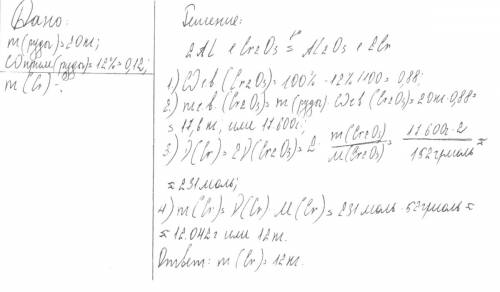 Дано:
m(руды)=20т;
ωприм(руды)=12%=0,12;
m(Cr)-.
Решение:
2Al + Cr2O3 = Al2O3 + 2Cr
1) ω св.(Cr2O3)=100% -12%/100=0,88;
2) m св.(Cr2O3)= m(руды)·ω св(Cr2O3)=20т·0,88=
=17,6т, или 17.600г;
3) ν(Cr)=2ν(Cr2O3)=2· m(Cr2O3)/M(Cr2O3)= 17600г·2/152г/моль =
≈231моль;
4) m(Cr)=ν(Cr)·M(Cr)=231моль·52г/моль=
≈12.042г или 12т.
Ответ: m(Cr)=12т.